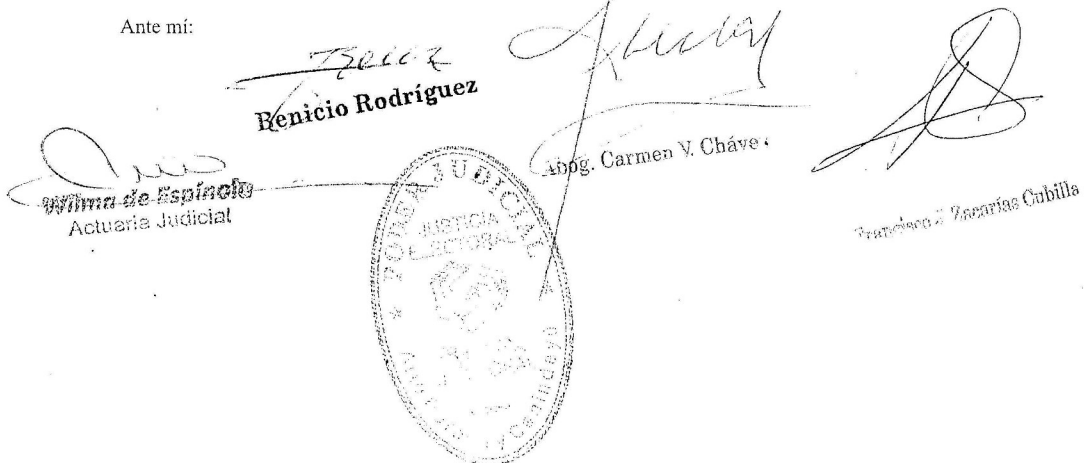 Ante mí:
Benicio Rodríguez
Abog. Carmen V. Cháve
Wilma de Espínola
Actuaria Judicial
Francisco Zacarías Cubilla
PODER JUDICIAL
JUSTICIA
ELECTORAL